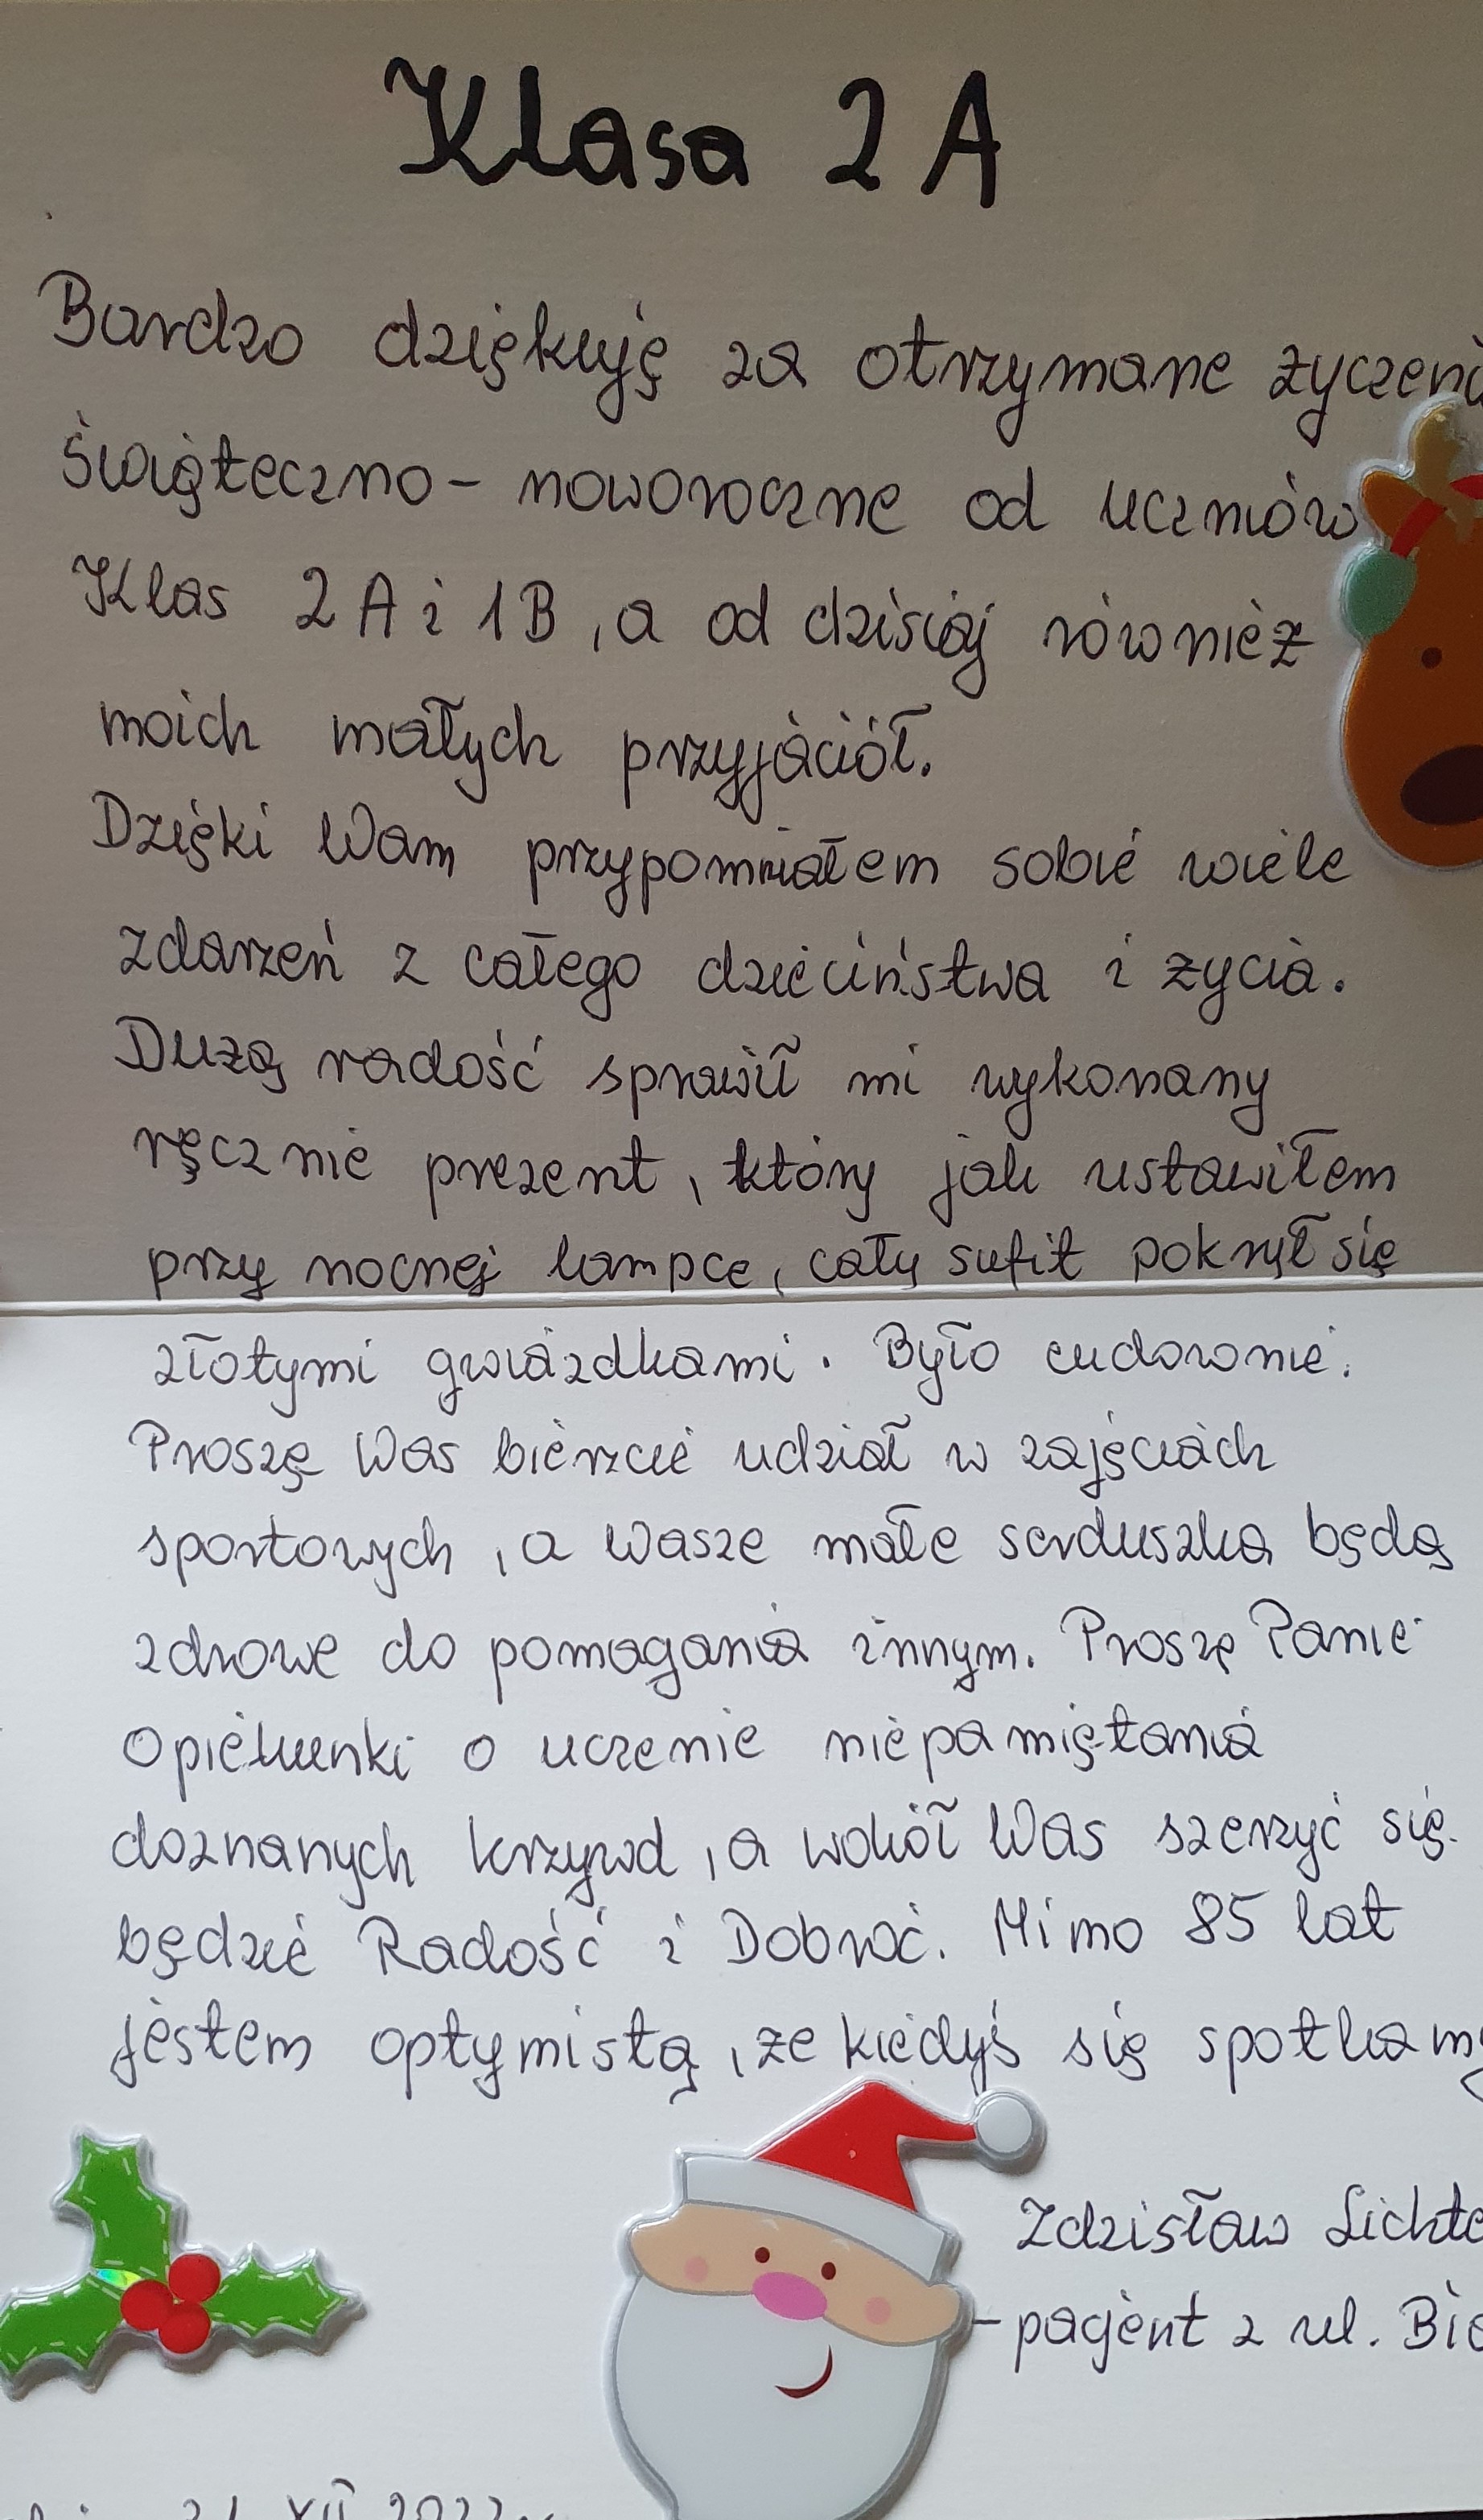 Klasa 2A
Bardzo dziękuję za otrzymane życzenia
świąteczno - noworoczne od uczniów
Klas 2A i 1B, a od dzisiaj również
moich małych przyjaciół.
Dzięki Wam przypomniałem sobie wiele
zdarzeń z całego dzieciństwa i życia.
Dużą radość sprawił mi wykonany
ręcznie prezent, który jak ustawiłem
przy nocnej lampce, cały sufit pokrył się
złotymi gwiazdkami. Było cudownie.
Proszę Was bierzcie udział w zajęciach
sportowych, a Wasze małe serduszka będą
zdrowe do pomagania innym. Proszę Panie
Opiekunki o uczenie niepamiętania
doznanych krzywd, a wokół Was szerzyć się
będzie Radość i Dobroć. Mimo 85 lat
jestem optymistą, że kiedyś się spotkamy
Zdzisław
- pacjent z ul.
XII